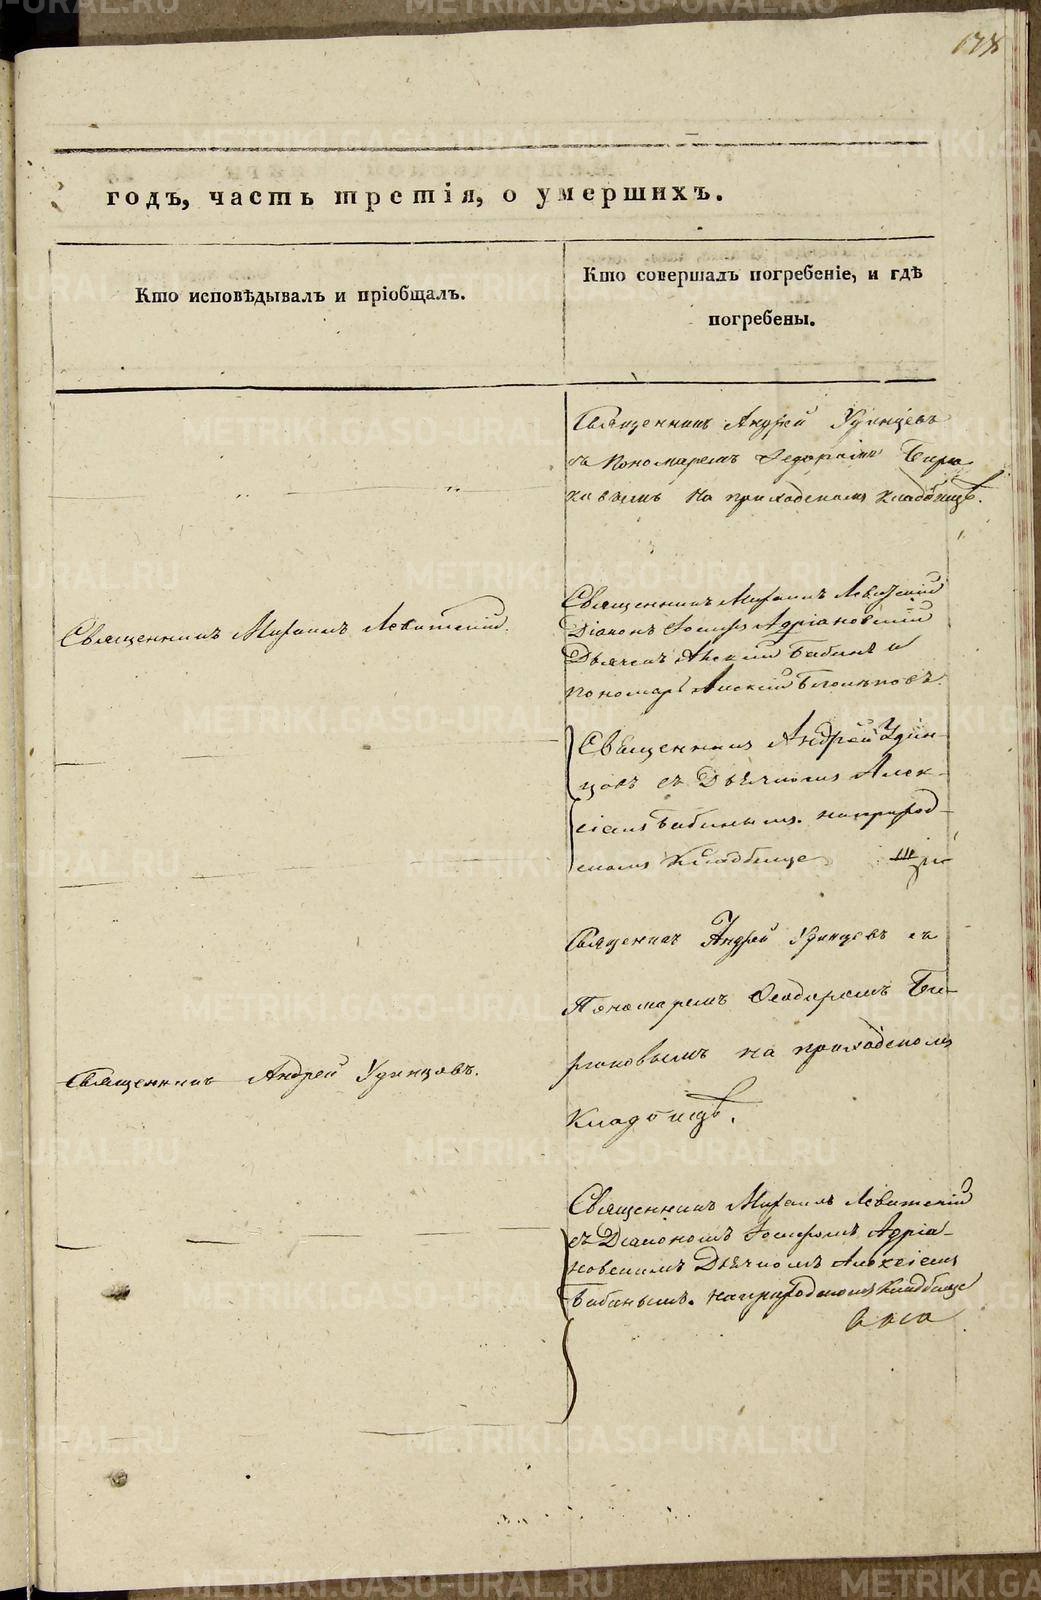 178
годъ, часть третія, о умершихъ.
Кто исповѣдывалъ и пріобщалъ.
Кто совершалъ погребеніе, и гдѣ
погребены.
Священникъ Андрей Удинцевъ
съ Пономаремъ Ѳедоромъ Бирю
ковымъ на приходскомъ кладбищѣ.
Священникъ Михаилъ Левитскій
Священникъ Михаилъ Левитскій
Діаконъ Іосифъ Адріановскій
Дьячекъ Алексій Бабинъ и
пономарь Алексій
Священникъ Андрей Удин-
цовъ съ Дьячкомъ Алек-
сіемъ Бабинымъ. на приход-
скомъ Кладбище
Священникъ Андрей Удинцевъ съ
Пономаремъ Ѳеодоромъ Би-
рюковымъ на приходскомъ
Кладбищѣ.
Священникъ Андрей Удинцовъ.
Священникъ Михаилъ Левитскій
съ Діакономъ Іосифомъ Адріа-
новскимъ Дьячкомъ Алексіемъ
Бабинымъ. на приходскомъ Кладбище
METRIKI.GASO-URAL.RU